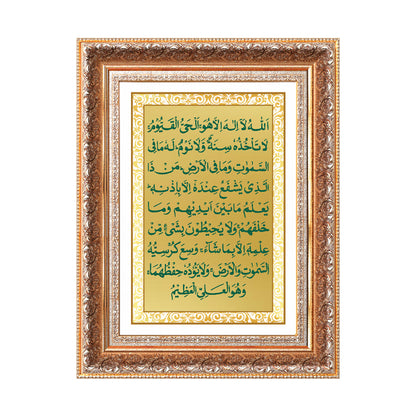 اَللّٰهُ لَآ اِلٰهَ اِلَّا هُوَ اَلْحَيُّ الْقَيُّوْمُ
لَا تَاْخُذُهٗ سِنَةٌ وَّلَا نَوْمٌ لَهٗ مَا فِى
السَّمٰوٰتِ وَمَا فِى الْاَرْضِ مَنْ ذَا
الَّذِىْ يَشْفَعُ عِنْدَهٗٓ اِلَّا بِاِذْنِهٖ
يَعْلَمُ مَا بَيْنَ اَيْدِيْهِمْ وَمَا
خَلْفَهُمْ وَلَا يُحِيْطُوْنَ بِشَىْءٍ مِّنْ
عِلْمِهٖٓ اِلَّا بِمَا شَآءَ وَسِعَ كُرْسِيُّهُ
السَّمٰوٰتِ وَالْاَرْضَ وَلَا يَئُوْدُهٗ حِفْظُهُمَا
وَهُوَ الْعَلِىُّ الْعَظِيْمُ